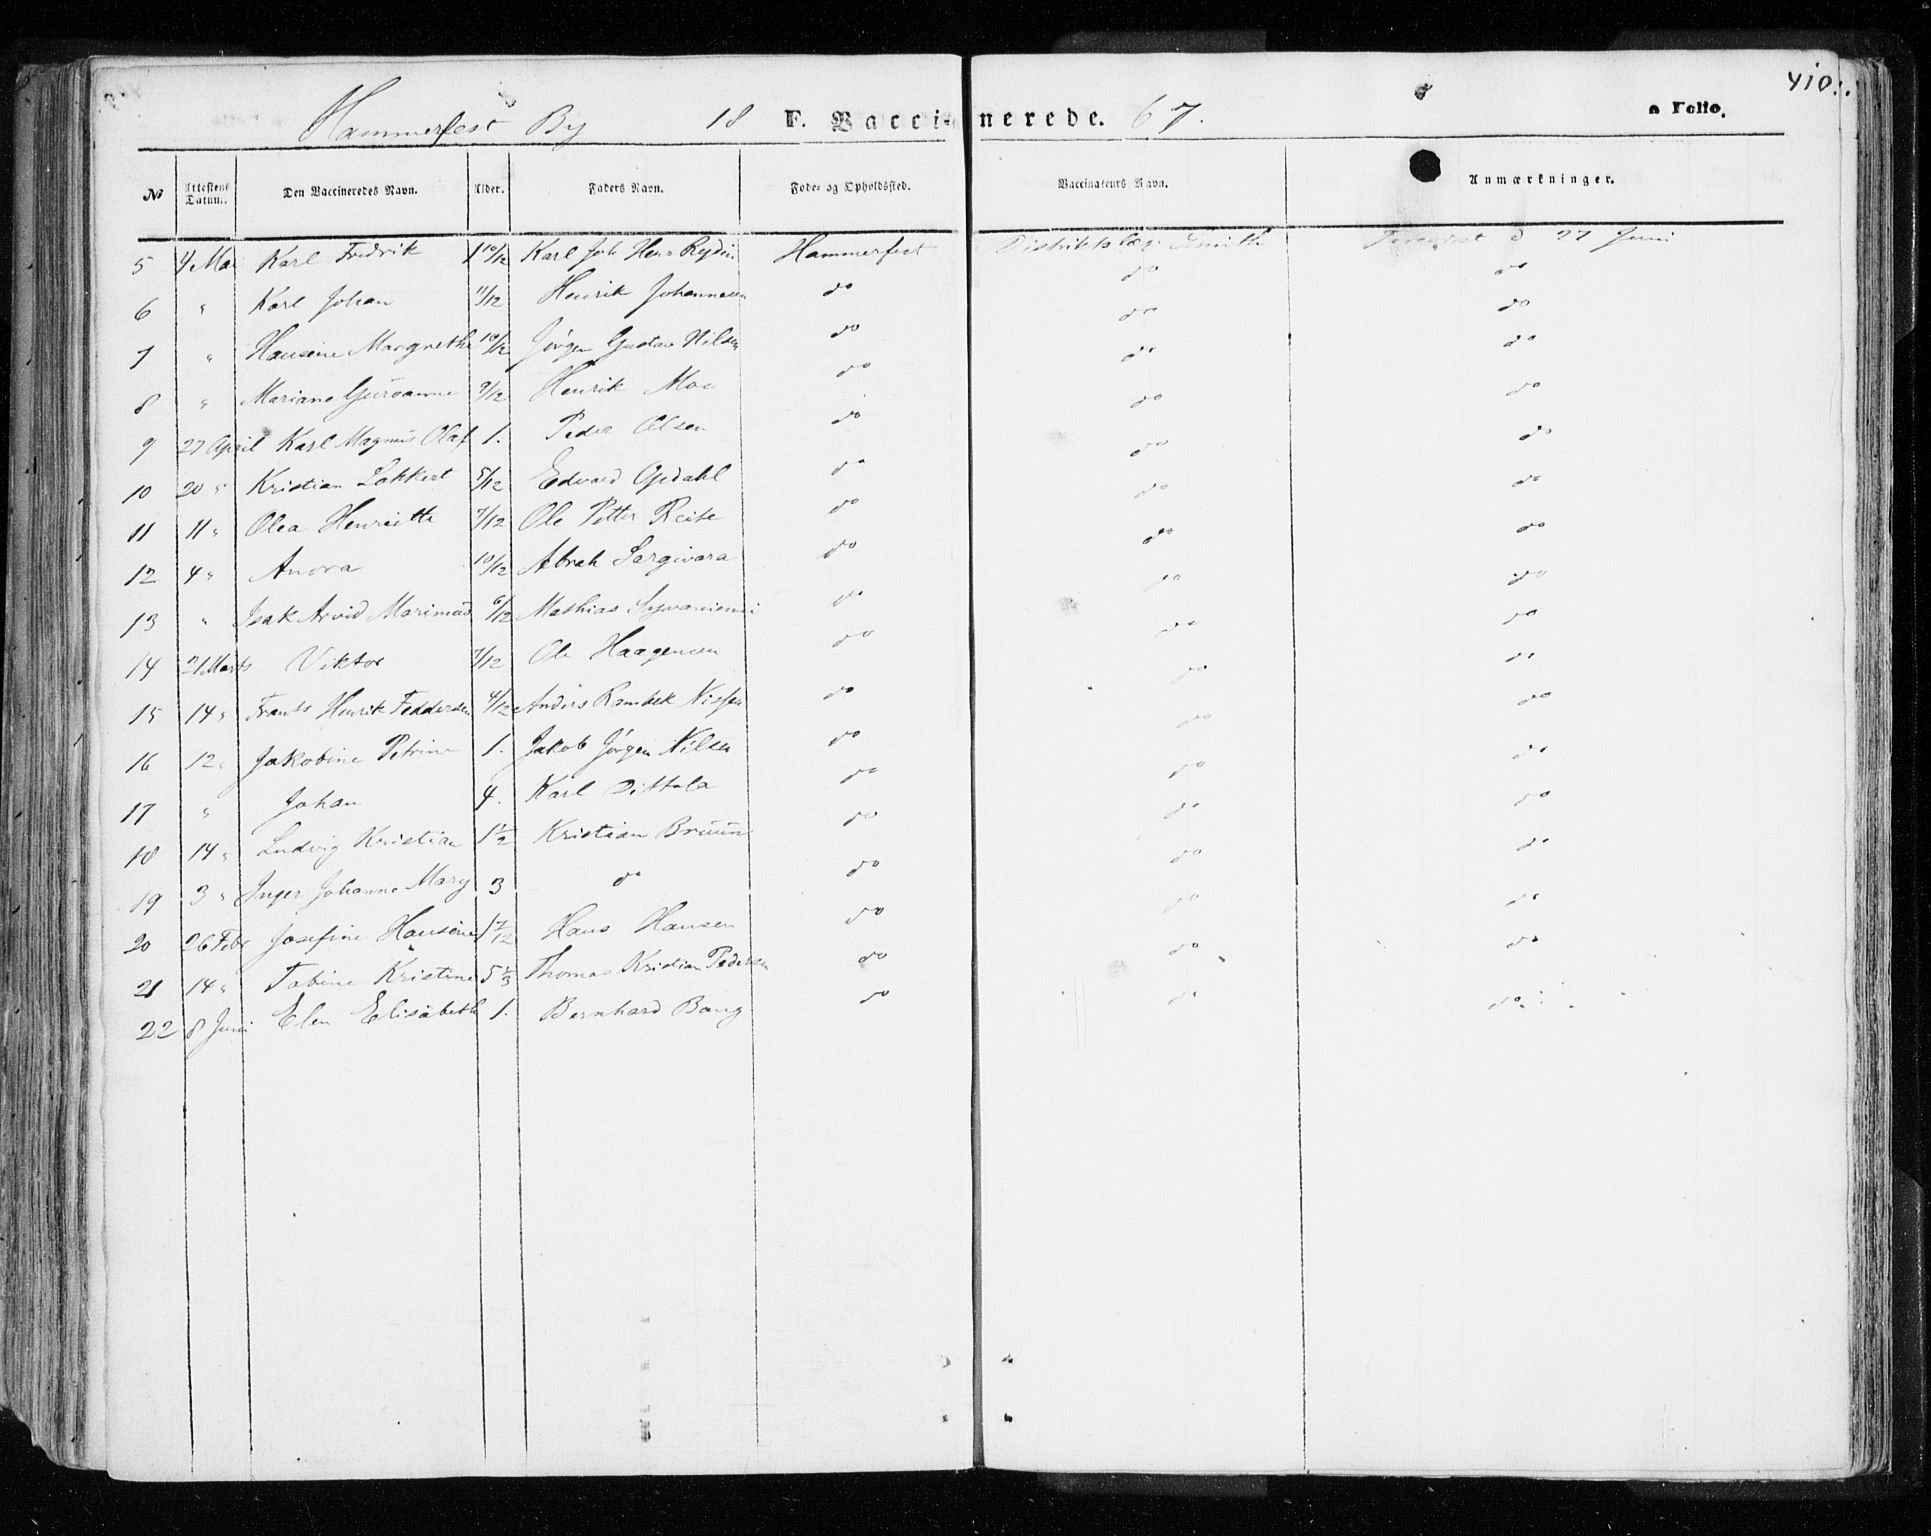 410.
Hammerfest By 18 F. Vaccinerede. 67. Folio.
No Attestens Datum. Den Vaccineredes Navn. Alder. Faders Navn. Føde- og Opholdssted. Vaccinateurs Navn. Anmærkninger.
5 4 Mai Karl Fredrik 1 10/12 Karl Joh Henr Rydin Hammerfest Distriktslæg. Smith d 27 Juni
6 " Karl Johan 11/12 Henrik Johannesen do do do
7 " Hansine Margrethe 10/12 Jørgen Gustav Nilsen do do do
8 " Mariane 9/12 Henrik Moe do do do
9 27 April Karl Magnus Olaf 1. Peder Olsen do do do
10 20 " Kristian Lokkert 5/12 Edvard Opdahl do do do
11 11 " Olea Henriette 7/12 Ole Petter Reite do do do
12 4 " Anora 10/12 Abrah Sargivara do do do
13 " Isak Arvid 6/12 Mathias do do do
14 21 Marts Viktor 7/12 Ole Haagensen do do do
15 14 " Frants Henrik Feddersen 4/12 Anders Rambek Nissen do do do
16 12 " Jakobine Petrine 1. Jakob Jørgen Nilsen do do do
17 " Johan 4. Karl Dittola do do do
18 14 " Ludvig Kristian 1 1/2 Kristian Bruun do do do
19 3 " Inger Johanne Mary 3 do do do do
20 26 Febr Josefine Hansine 1 7/12 Hans Hansen do do do
21 14 " Tobine Kristine 5 1/3 Thomas Kristian Pedersen do do do
22 8 Juni Elen Elisabeth 1. Bernhard Bang do do do